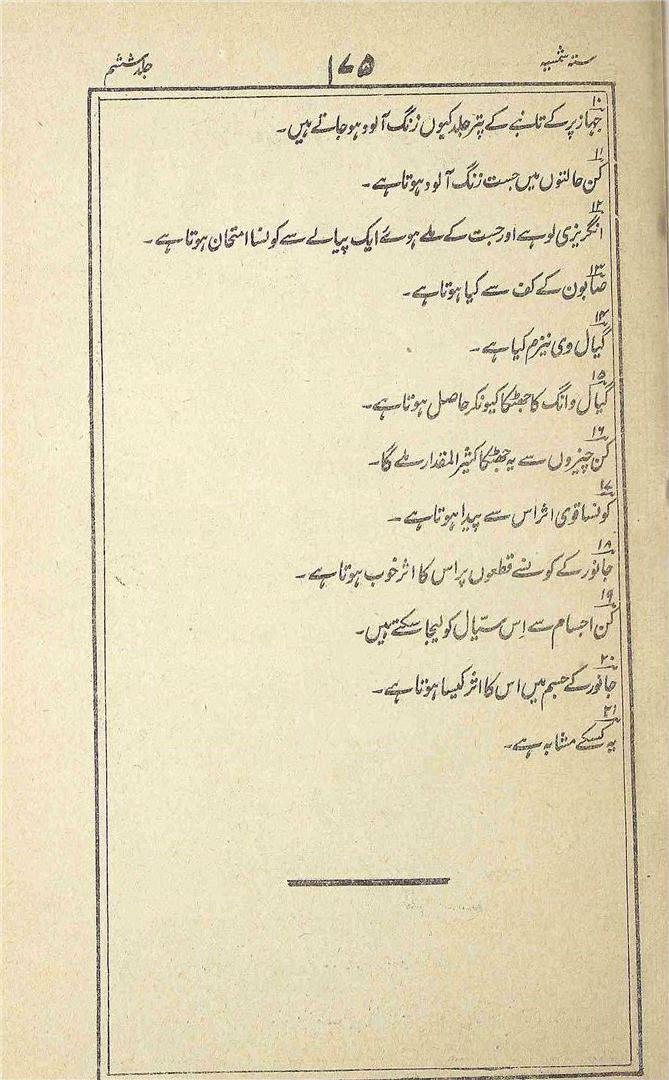 ستہ شمسیہ ۱۷۵ جلد ششم
۱۰
جہاز پر کے تانبے کے پتر جلد کیوں زنگ آلود ہو جاتے ہیں۔
۱۱
کن حالتوں میں جست زنگ آلود ہوتا ہے۔
۱۲
انگریزی لوہے اور جست کے ملے ہوئے ایک پیالے سے کونسا امتحان ہوتا ہے۔
۱۳
صابون کے کف سے کیا ہوتا ہے۔
۱۴
گیال وی نیزم کیا ہے۔
۱۵
گیال وانگ کا جھٹکا کیونکر حاصل ہوتا ہے۔
۱۶
کن چیزوں سے یہ جھٹکا کثیر المقدار ملے گا۔
۱۷
کونسا قوی اثر اس سے پیدا ہوتا ہے۔
۱۸
جانور کے کونسے قطعوں پر اس کا اثر خوب ہوتا ہے۔
۱۹
کن اجسام سے اِس سیّال کو لیجا سکتے ہیں۔
۲۰
جانور کے جسم میں اس کا اثر کیسا ہوتا ہے۔
۲۱
یہ کسکے مشابہ ہے۔